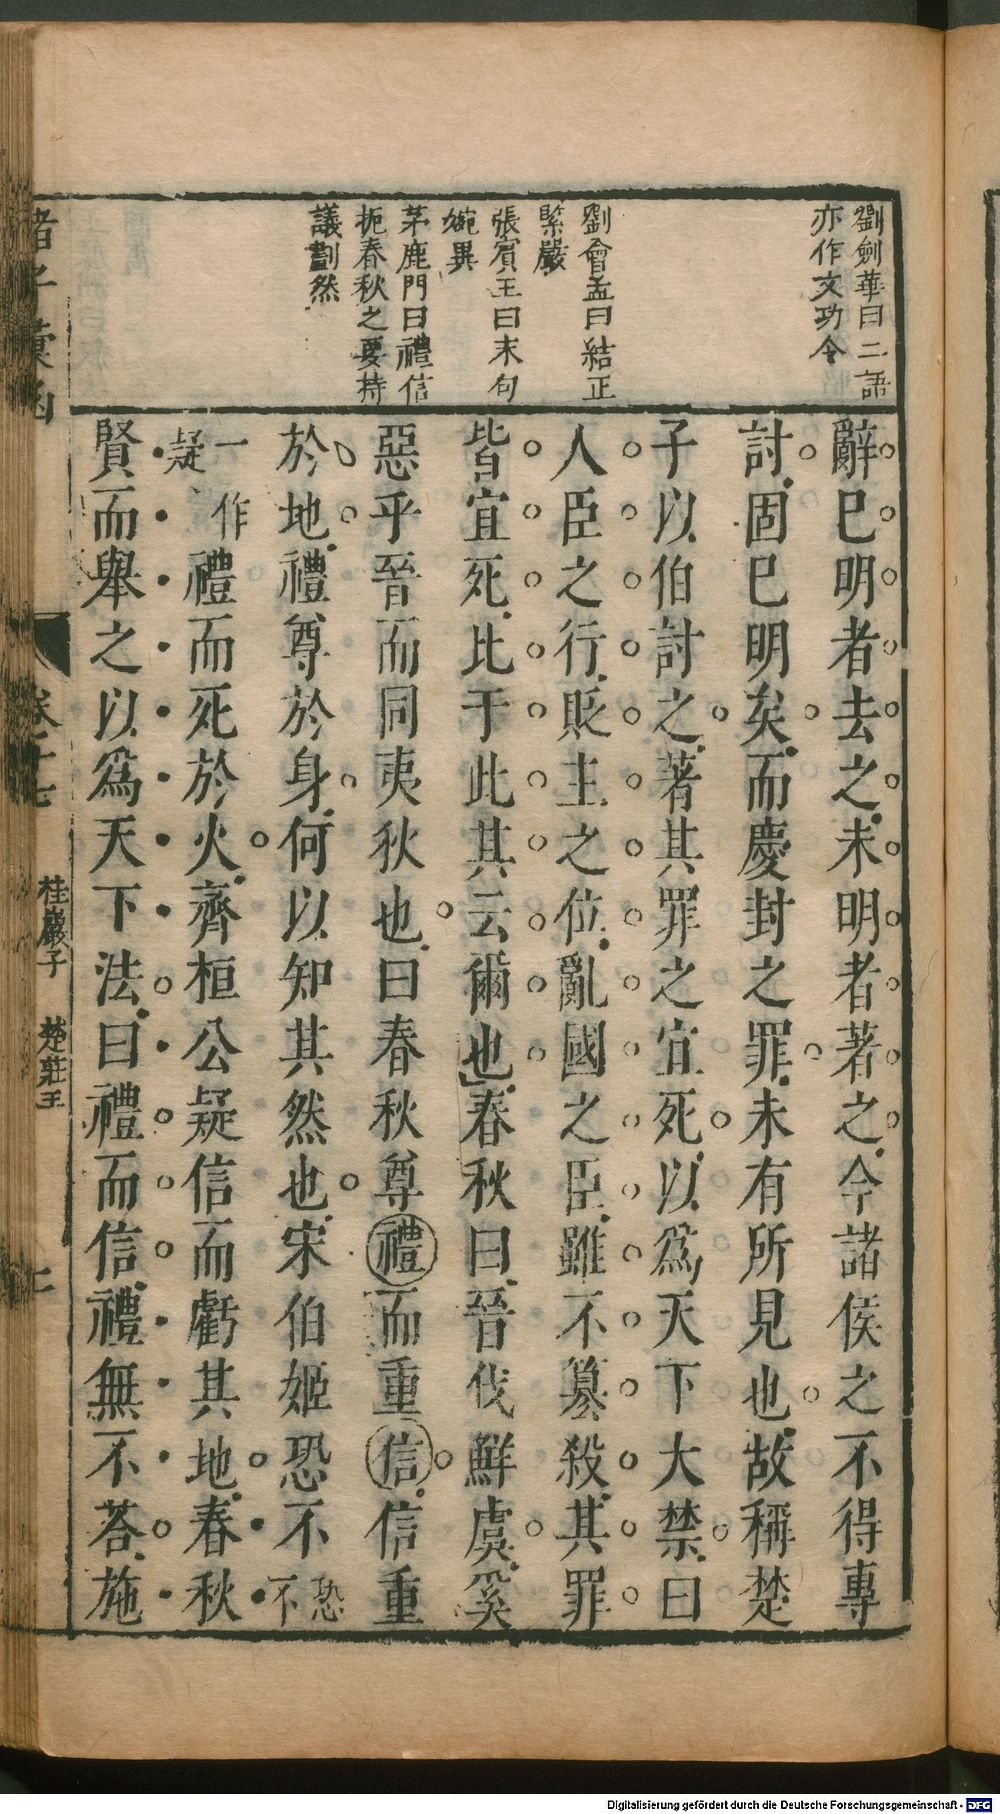 劉劍華曰二語
亦作文功令
劉會孟曰結正
緊嚴
張賓王曰末句
婉異
茅鹿門曰禮信
扼春秋之要持
議劃然
辭巳明者去之未明者著之今諸侯之不得專
討固巳明矣而慶封之罪未有所見也故稱楚
子以伯討之著其罪之宜死以爲天下大禁曰
人臣之行貶主之位亂國之臣雖不篡殺其罪
皆宜死比于此其云爾也春秋曰晉伐鮮虞奚
惡乎晉而同夷狄也曰春秋尊禮而重信信重
於地禮尊於身何以知其然也宋伯姬恐不恐不
一作疑禮而死於火齊桓公疑信而虧其地春秋
賢而舉之以爲天下法曰禮而信禮無不荅施
諸子彙函
卷十七
桂巖子
楚莊王
七
Digitalisierung gefördert durch die Deutsche Forschungsgemeinschaft - DFG